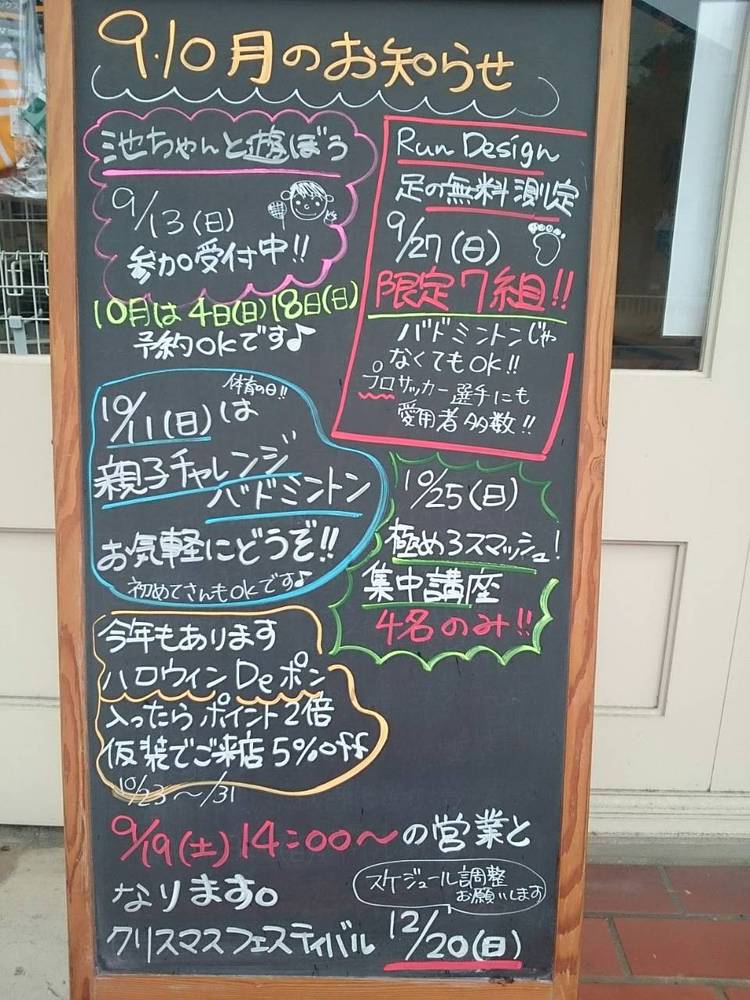 9.10月のお知らせ
池ちゃんと遊ぼう
9/13(日)
参加受付中!!
10月は4日(日)18日(日)
予約OKです♪
Run Design
足の無料測定
9/27(日)
限定7組!!
バドミントンじゃ
なくてもOK!!
プロサッカー選手にも
愛用者多数!!
体育の日!!
10/11(日)は
親子チャレンジ
バドミントン
お気軽にどうぞ!!
初めてさんもOKです♪
10/25(日)
極めろスマッシュ!
集中講座
4名のみ!!
今年もあります
ハロウィンDeポン
入ったらポイント2倍
仮装でご来店5%off
10/23〜/31
9/19(土)14:00〜の営業と
なります。
スケジュール調整
お願いします
クリスマスフェスティバル 12/20(日)